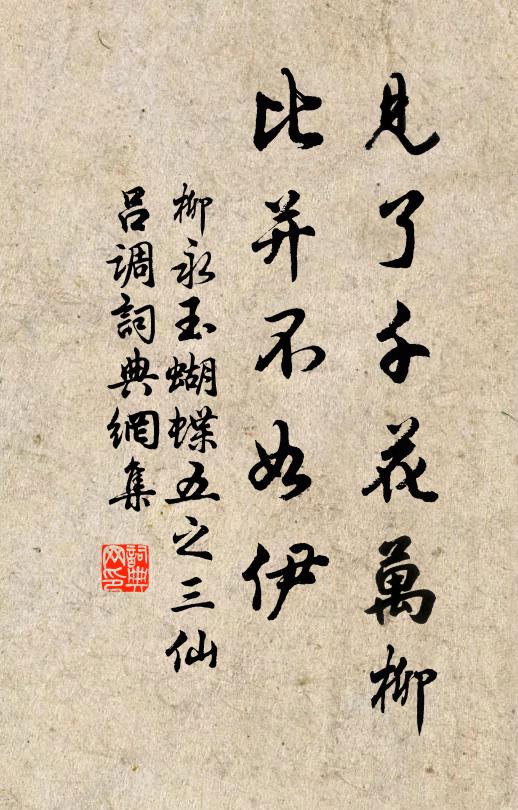 見了千花萬柳
比并不如伊
柳永玉蝴蝶五之三仙
呂调詞典網集
詞典
网印